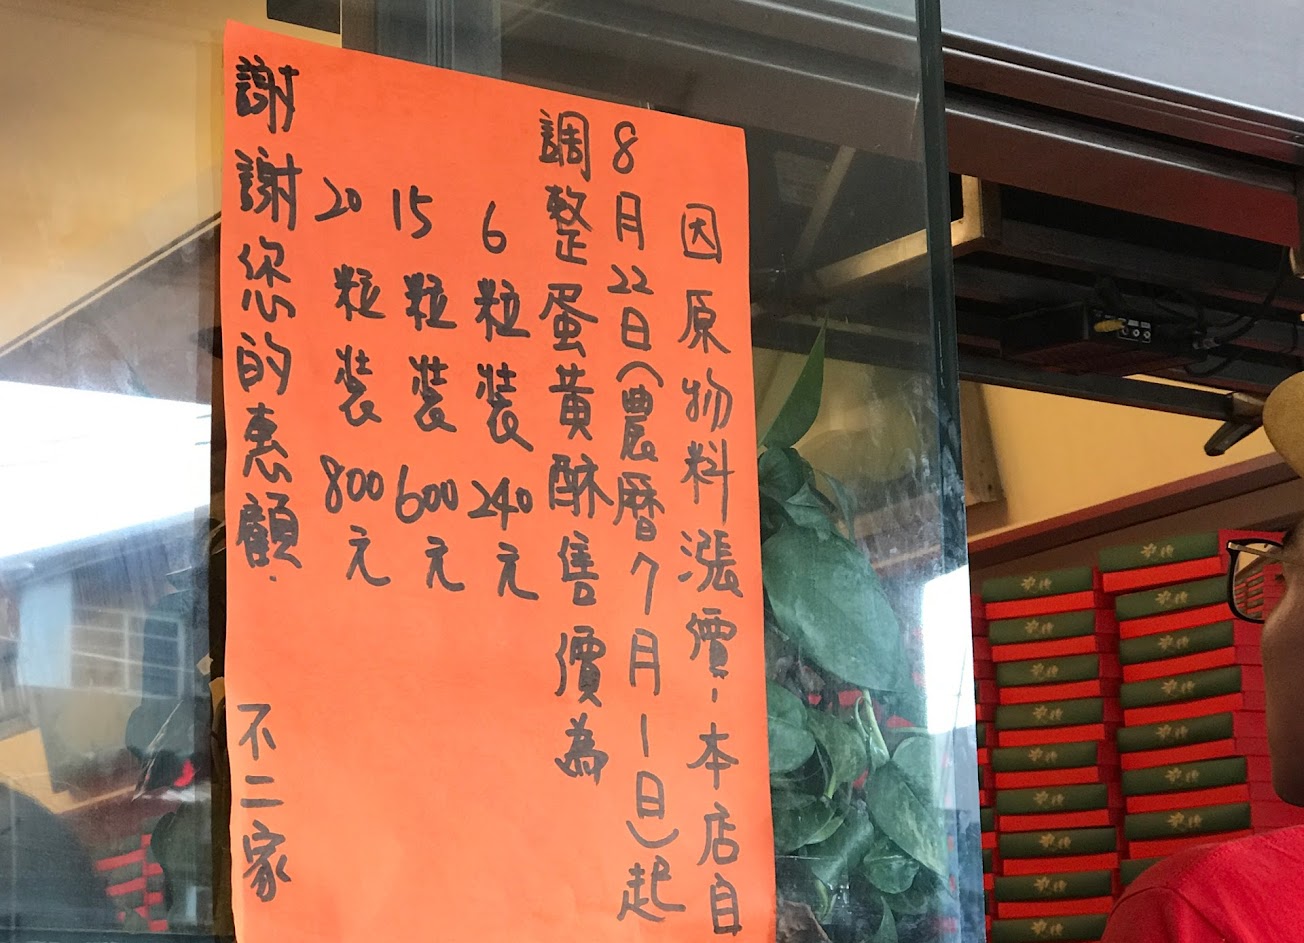 因原物料漲價，本店自
8月22日(農曆7月1日)起
調整蛋黃酥售價為
6粒裝240元
15粒裝600元
20粒裝800元
謝謝您的惠顧. 不二家